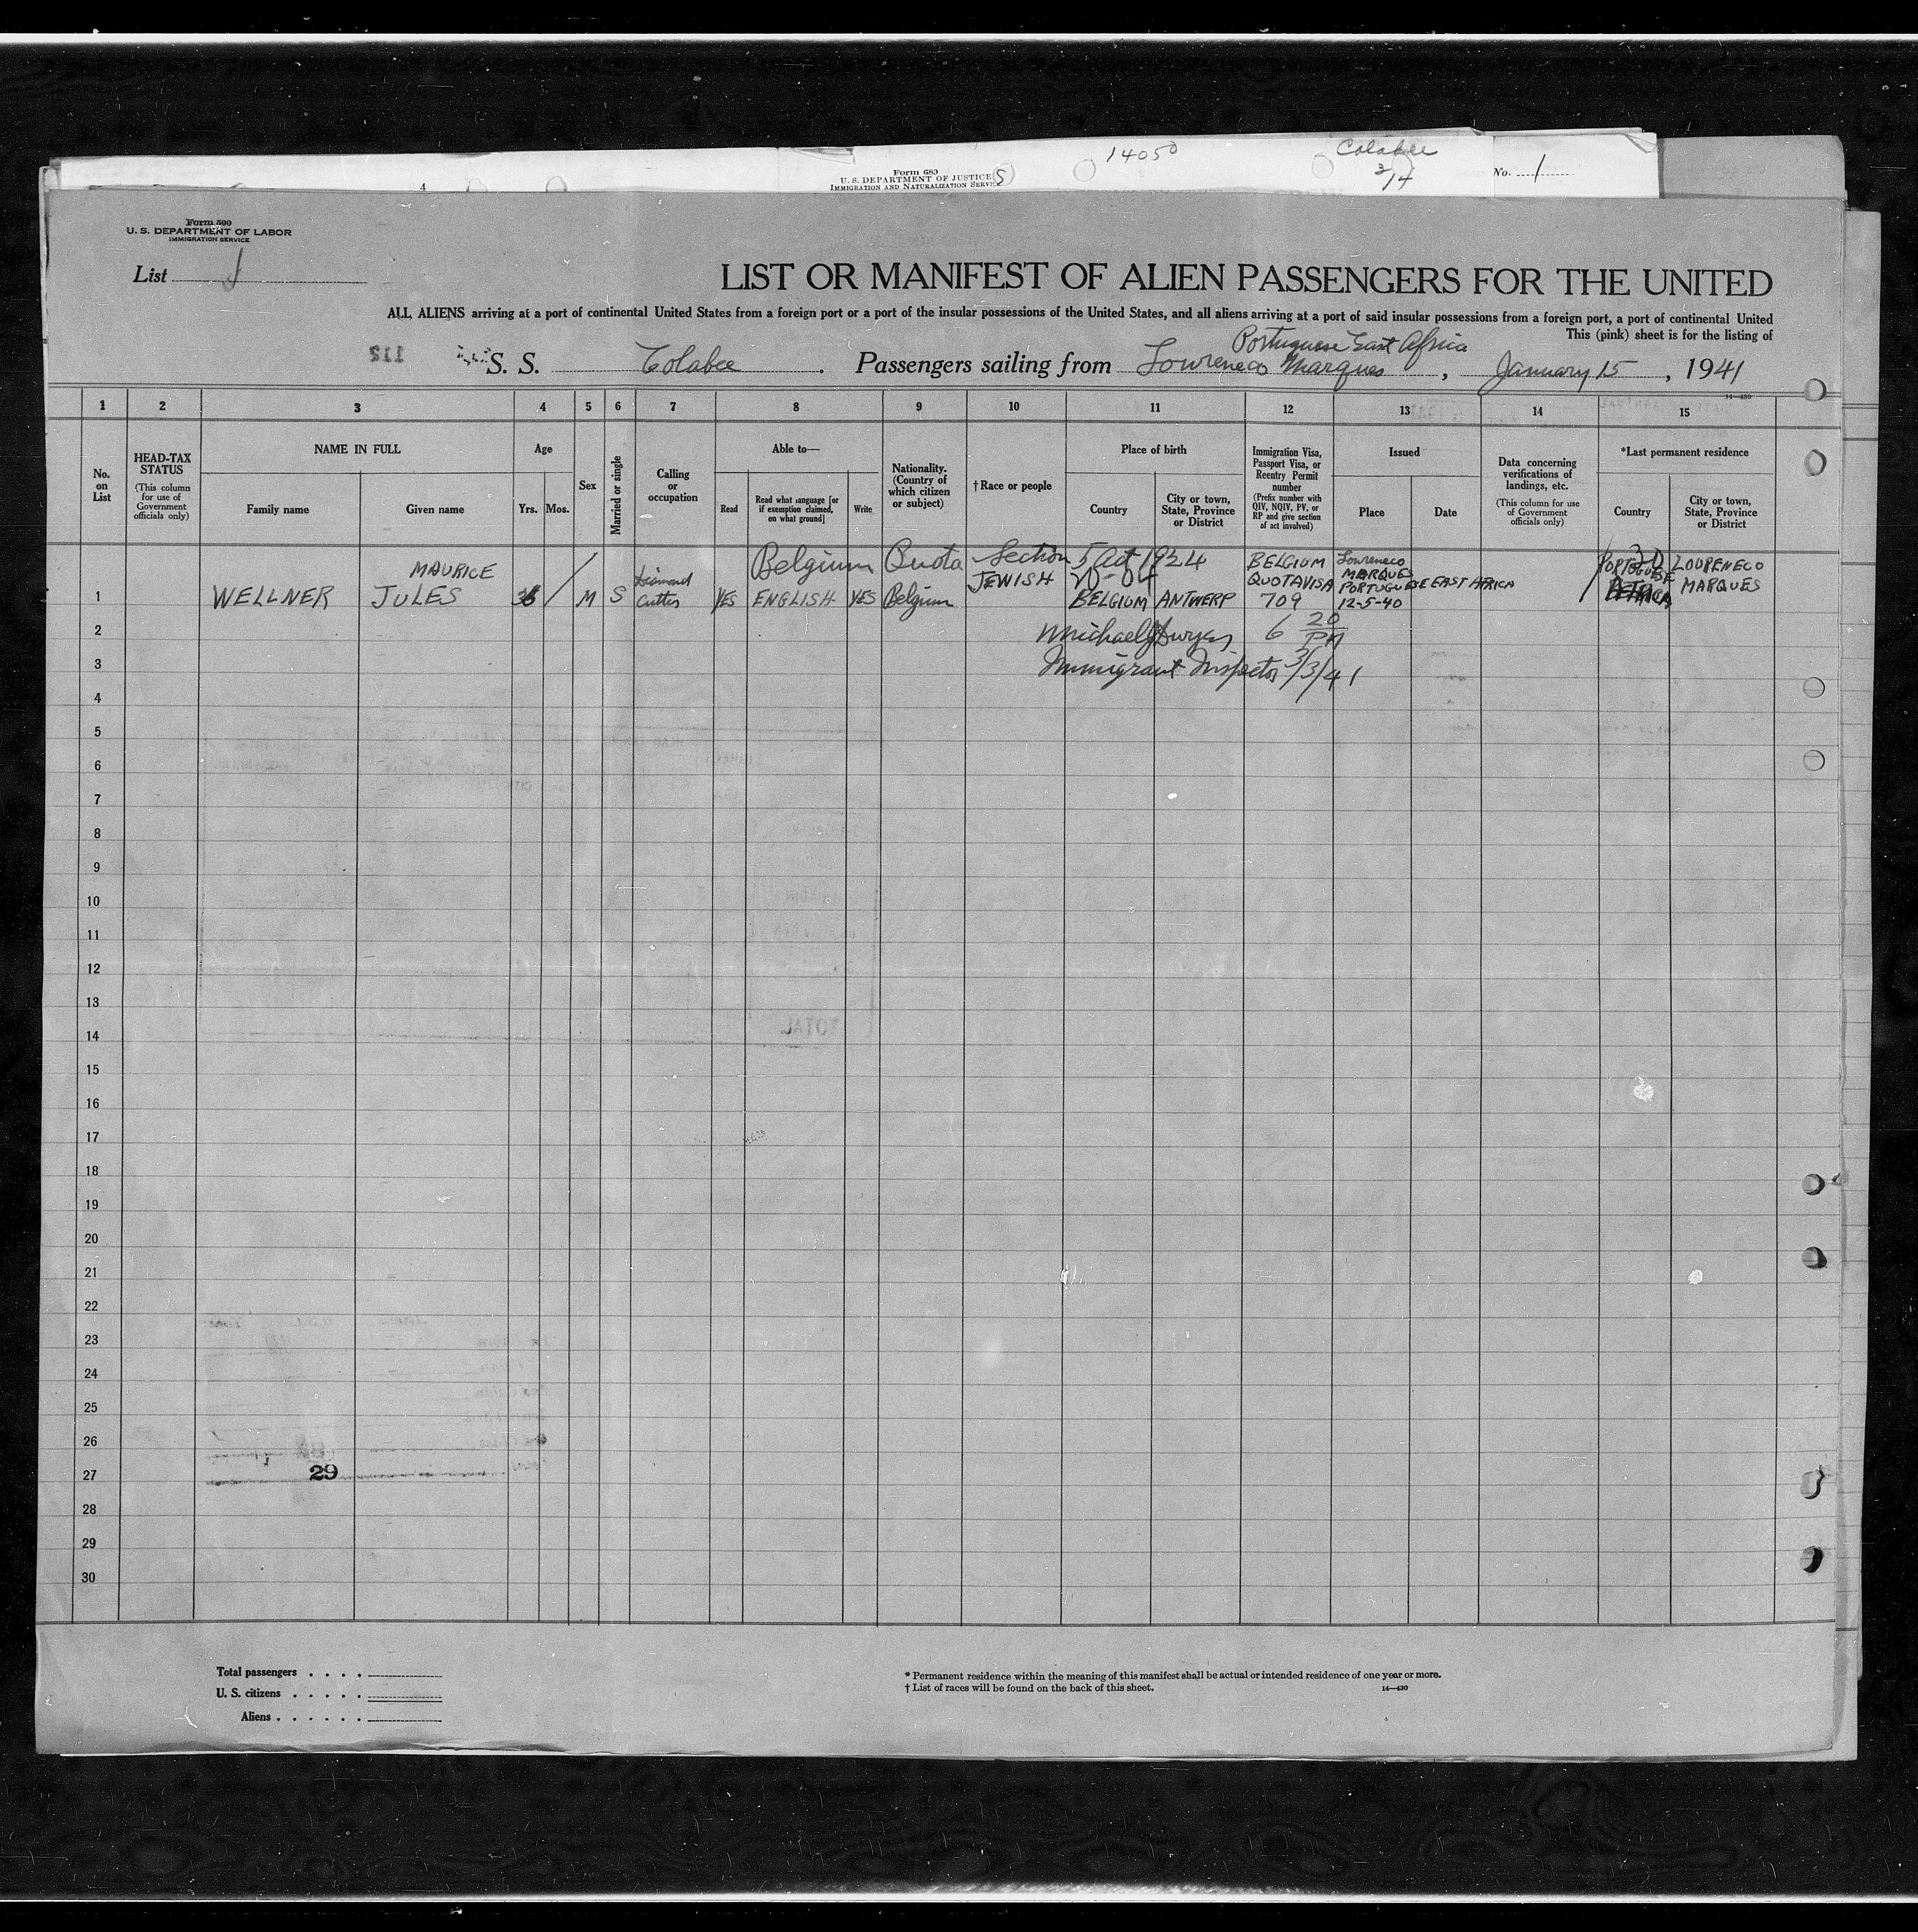 14050
Colabee
3/14
No. 1
Form 689
U. S. DEPARTMENT OF JUSTICE
IMMIGRATION AND NATURALIZATION SERVICE
Form 500
U. S. DEPARTMENT OF LABOR
IMMIGRATION SERVICE
List 1
LIST OR MANIFEST OF ALIEN PASSENGERS FOR THE UNITED
ALL ALIENS arriving at a port of continental United States from a foreign port or a port of the insular possessions of the United States, and all aliens arriving at a port of said insular possessions from a foreign port, a port of continental United
This (pink) sheet is for the listing of
Portuguese East Africa
S. S. Colabee . Passengers sailing from Loureneco Marques , January 15 , 1941
14—430
1 2 3 4 5 6 7 8 9 10 11 12 13 14 15
No. on List
HEAD-TAX STATUS
(This column for use of Government officials only)
NAME IN FULL
Family name
Given name
Age
Yrs.
Mos.
Sex
Married or single
Calling or occupation
Able to—
Read
Read what language [or if exemption claimed, on what ground]
Write
Nationality. (Country of which citizen or subject)
†Race or people
Place of birth
Country
City or town, State, Province or District
Immigration Visa, Passport Visa, or Reentry Permit number
(Prefix number with QIV, NQIV, PV, or RP and give section of act involved)
Issued
Place
Date
Data concerning verifications of landings, etc.
(This column for use of Government officials only)
*Last permanent residence
Country
City or town, State, Province or District
Belgium Quota Section 5 Act 1924
1 WELLNER MAURICE JULES M S Diamond Cutter YES ENGLISH YES Belgium JEWISH BELGIUM ANTWERP BELGIUM QUOTA VISA 709 Loureneco MARQUES PORTUGUESE EAST AFRICA 12-5-40 PORTUGUESE LOURENECO MARQUES
2 Michael 6 20 PM
3 Immigrant Inspector 3/3/41
4
5
6
7
8
9
10
11
12
13
14
15
16
17
18
19
20
21
22
23
24
25
26
27 29
28
29
30
Total passengers . . . .
U. S. citizens . . . . .
Aliens . . . . . .
* Permanent residence within the meaning of this manifest shall be actual or intended residence of one year or more.
† List of races will be found on the back of this sheet.
14—430